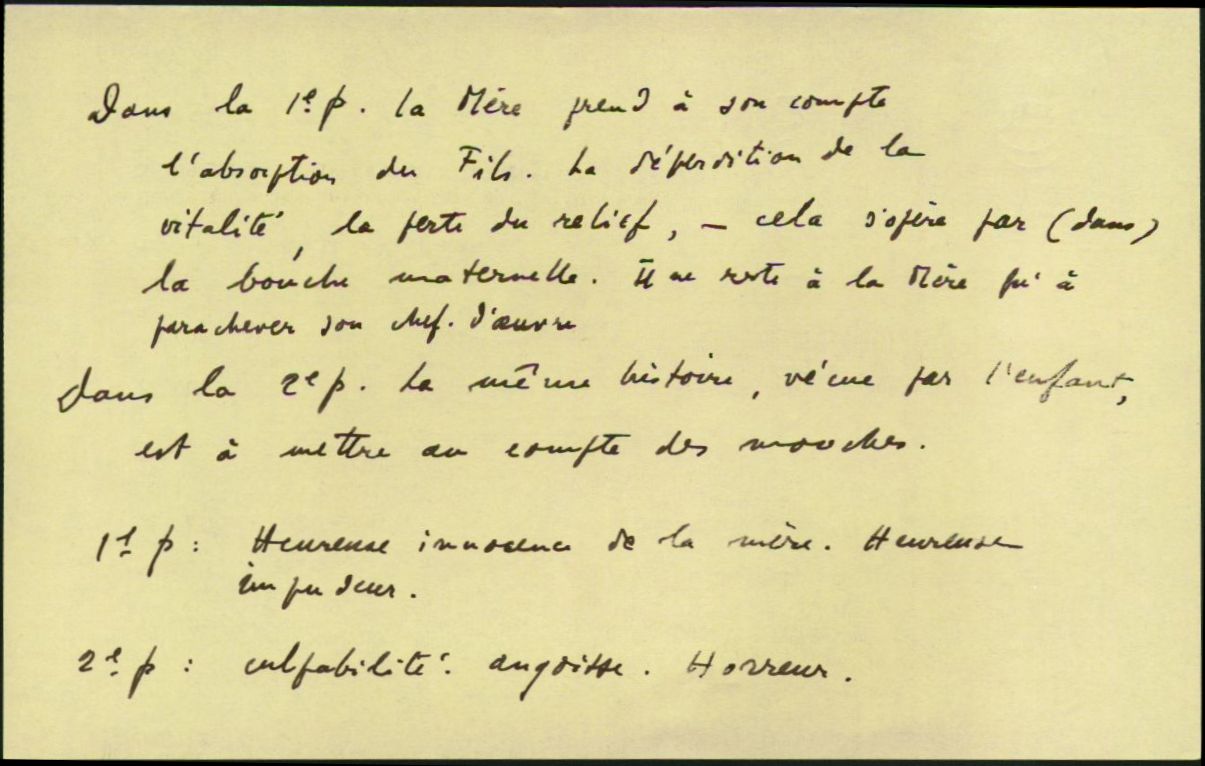 Dans la 1e p. la Mère prend à son compte
l'absorption du Fils. La déperdition de la
vitalité, la perte du relief, – cela s'opère par (dans)
la bouche maternelle. Il ne reste à la Mère qu'à
parachever son chef. d'œuvre
Dans la 2e p. La même histoire, vécue par l'enfant,
est à mettre au compte des mouches.
1e p : Heureuse innocence de la mère. Heureuse
impudeur.
2e p : culpabilité. angoisse. Horreur.